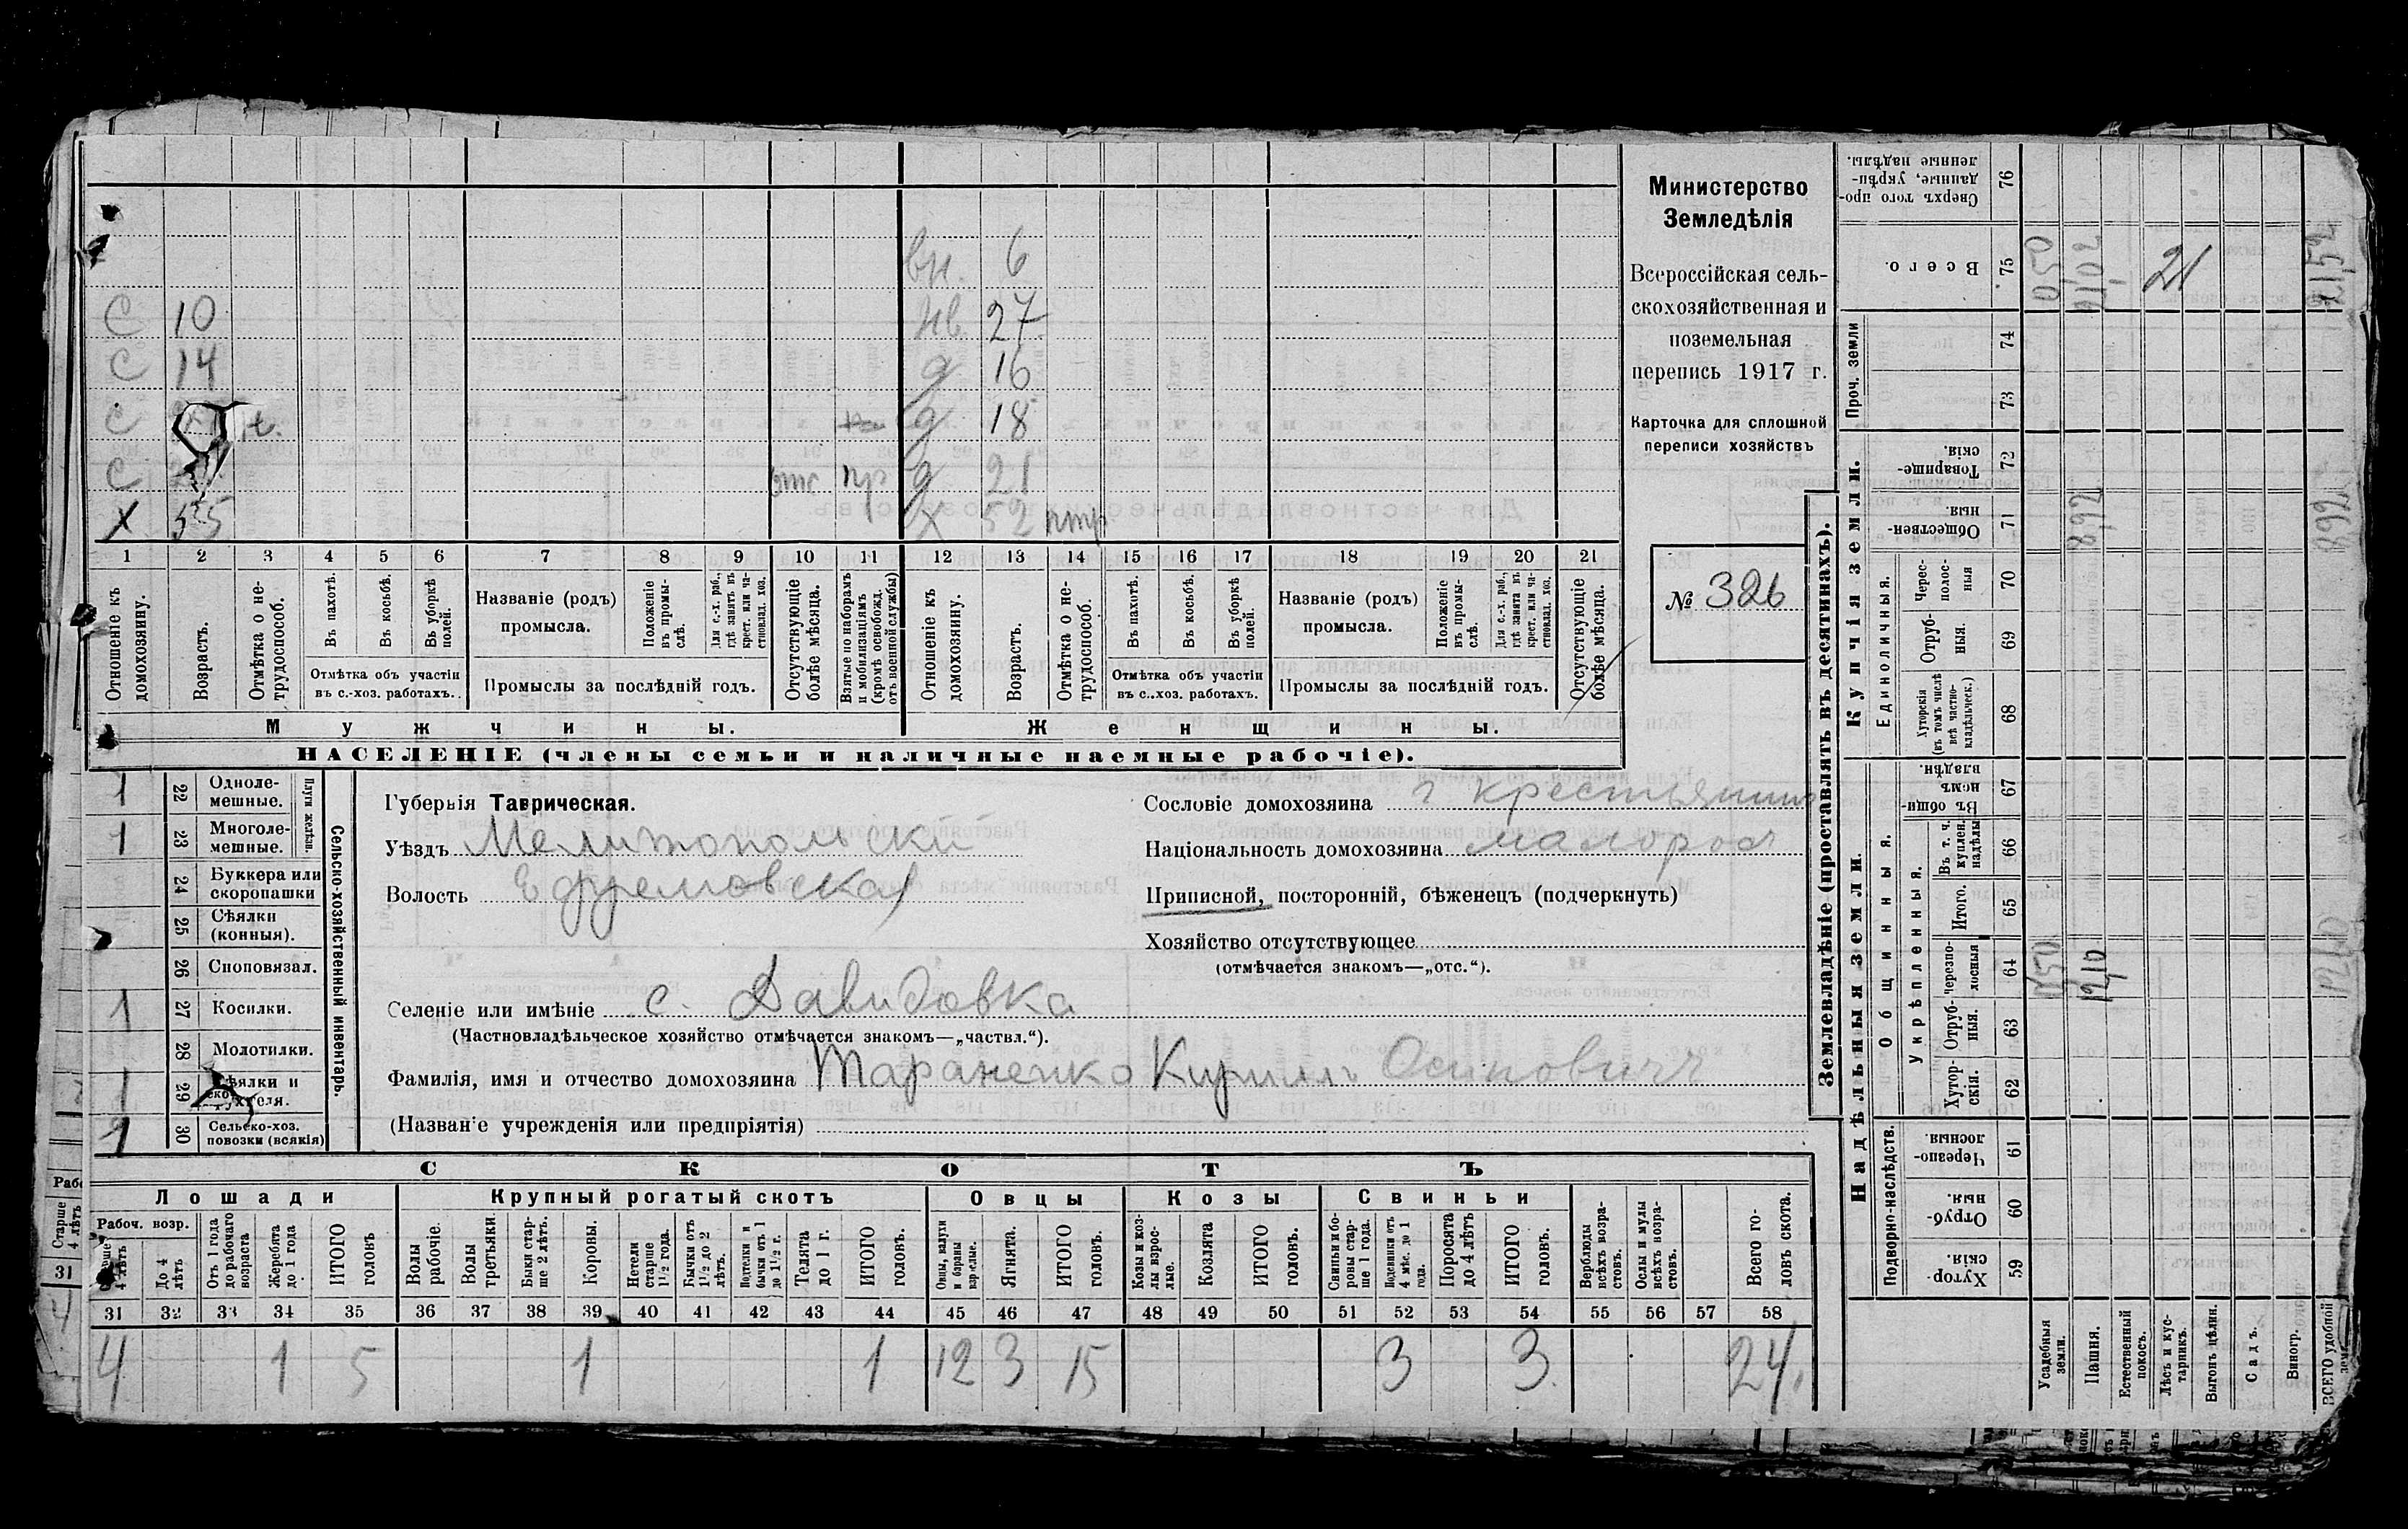 Министерство
Земледѣлія
Всероссійская сель-
скохозяйственная и
поземельная
перепись 1917 г.
Карточка для сплошной
переписи хозяйствъ
№ 326
вн. 6
С 10 нв. 27
С 14 д 16
С д 18
С отс пр д 21
Х 55 Х 52
1 2 3 4 5 6 7 8 9 10 11 12 13 14 15 16 17 18 19 20 21
Отношеніе къ домохозяину.
Возрастъ.
Отмѣтка о не-трудоспособ.
Въ пахотѣ.
Въ косьбѣ.
Въ уборкѣ полей.
Отмѣтка объ участіи въ с.-хоз. работахъ.
Названіе (родъ) промысла.
Положеніе въ промы-слѣ.
Для с.-х. раб., гдѣ занятъ въ крест. или ча-стновлад. хоз.
Промыслы за послѣдній годъ.
Отсутствующіе болѣе мѣсяца.
Взятые по наборамъ и мобилизаціямъ (кромѣ освобожд. отъ военной службы)
Отношеніе къ домохозяину.
Возрастъ.
Отмѣтка о не-трудоспособ.
Въ пахотѣ.
Въ косьбѣ.
Въ уборкѣ полей.
Отмѣтка объ участіи въ с.-хоз. работахъ.
Названіе (родъ) промысла.
Положеніе въ промы-слѣ.
Для с.-х. раб., гдѣ занята въ крест. или ча-стновлад. хоз.
Промыслы за послѣдній годъ.
Отсутствующіе болѣе мѣсяца.
Мужчины. Женщины.
НАСЕЛЕНІЕ (члены семьи и наличные наемные рабочіе).
1 22 Одноле-мешные.
1 23 Многоле-мешные.
Плуги желѣзн.
24 Буккера или скоропашки
25 Сѣялки (конныя).
26 Сноповязал.
1 27 Косилки.
28 Молотилки.
1 29
30 Сельско-хоз. повозки (всякія)
Сельско-хозяйственный инвентарь.
Губернія Таврическая.
Уѣздъ Мелитопольскій
Волость Ефремовская
Селеніе или имѣніе с. Давидовка
(Частновладѣльческое хозяйство отмѣчается знакомъ—„частвл.“).
Фамилія, имя и отчество домохозяина Тараненко Кириллъ Осиповичъ
(Названіе учрежденія или предпріятія)
Сословіе домохозяина крестьянинъ
Національность домохозяина малорос
Приписной, посторонній, бѣженецъ (подчеркнуть)
Хозяйство отсутствующее
(отмѣчается знакомъ—„отс.“).
СКОТЪ
Лошади Крупный рогатый скотъ Овцы Козы Свиньи
Рабоч. возр.
До 4 лѣтъ
Отъ 1 года до рабочаго возраста
Жеребята до 1 года
ИТОГО головъ
Волы рабочіе.
Волы третьяки.
Быки стар-ше 2 лѣтъ.
Коровы.
Нетели старше 1½ года.
Бычки отъ 1½ до 2 лѣтъ.
Подтелки и бычки отъ 1 до 1½ г.
Телята до 1 г.
ИТОГО головъ.
Овцы, валухи и бараны взрослые.
Ягнята.
ИТОГО головъ.
Козы и коз-лы взрос-лые.
Козлята
ИТОГО головъ.
Свиньи и бо-ровы стар-ше 1 года.
Подсвинки отъ 4 мѣс. до 1 года.
Поросята до 4 лѣтъ
ИТОГО головъ.
Верблюды всѣхъ возра-стовъ.
Ослы и мулы всѣхъ возра-стовъ.
Всего го-ловъ скота.
31 32 33 34 35 36 37 38 39 40 41 42 43 44 45 46 47 48 49 50 51 52 53 54 55 56 57 58
4 1 5 1 1 12 3 15 3 3 24
Землевладѣніе (проставлять въ десятинахъ).
Надѣльныя земли. Купчія земли.
Подворно-наслѣдств.
Общинныя.
Укрѣпленныя.
Единоличныя.
Проч. земли
Сверхъ того про-данные, укрѣп-ленные надѣлы. 76
Всего. 75
74
73
Товарище-скія. 72
Обществен-ныя. 71
Черес-полос-ныя 70
Отруб-ныя. 69
Хуторскія (въ томъ числѣ всѣ частно-владѣльческ.) 68
Въ общин-номъ владѣн. 67
Въ т. ч. куплен. надѣлы 66
Итого. 65
Черезпо-лосныя 64
Отруб-ныя. 63
Хутор-скія. 62
Черезпо-лосныя. 61
Отруб-ныя. 60
Хутор-скія. 59
Усадебныя земли.
Пашня.
Естественный покосъ.
Лѣсъ и кус-тарникъ.
Выгонъ цѣлин.
Садъ.
Виногр.
ВСЕГО удобной
050
21
2152
892
892
1210
1210
Старше 4 лѣтъ
31